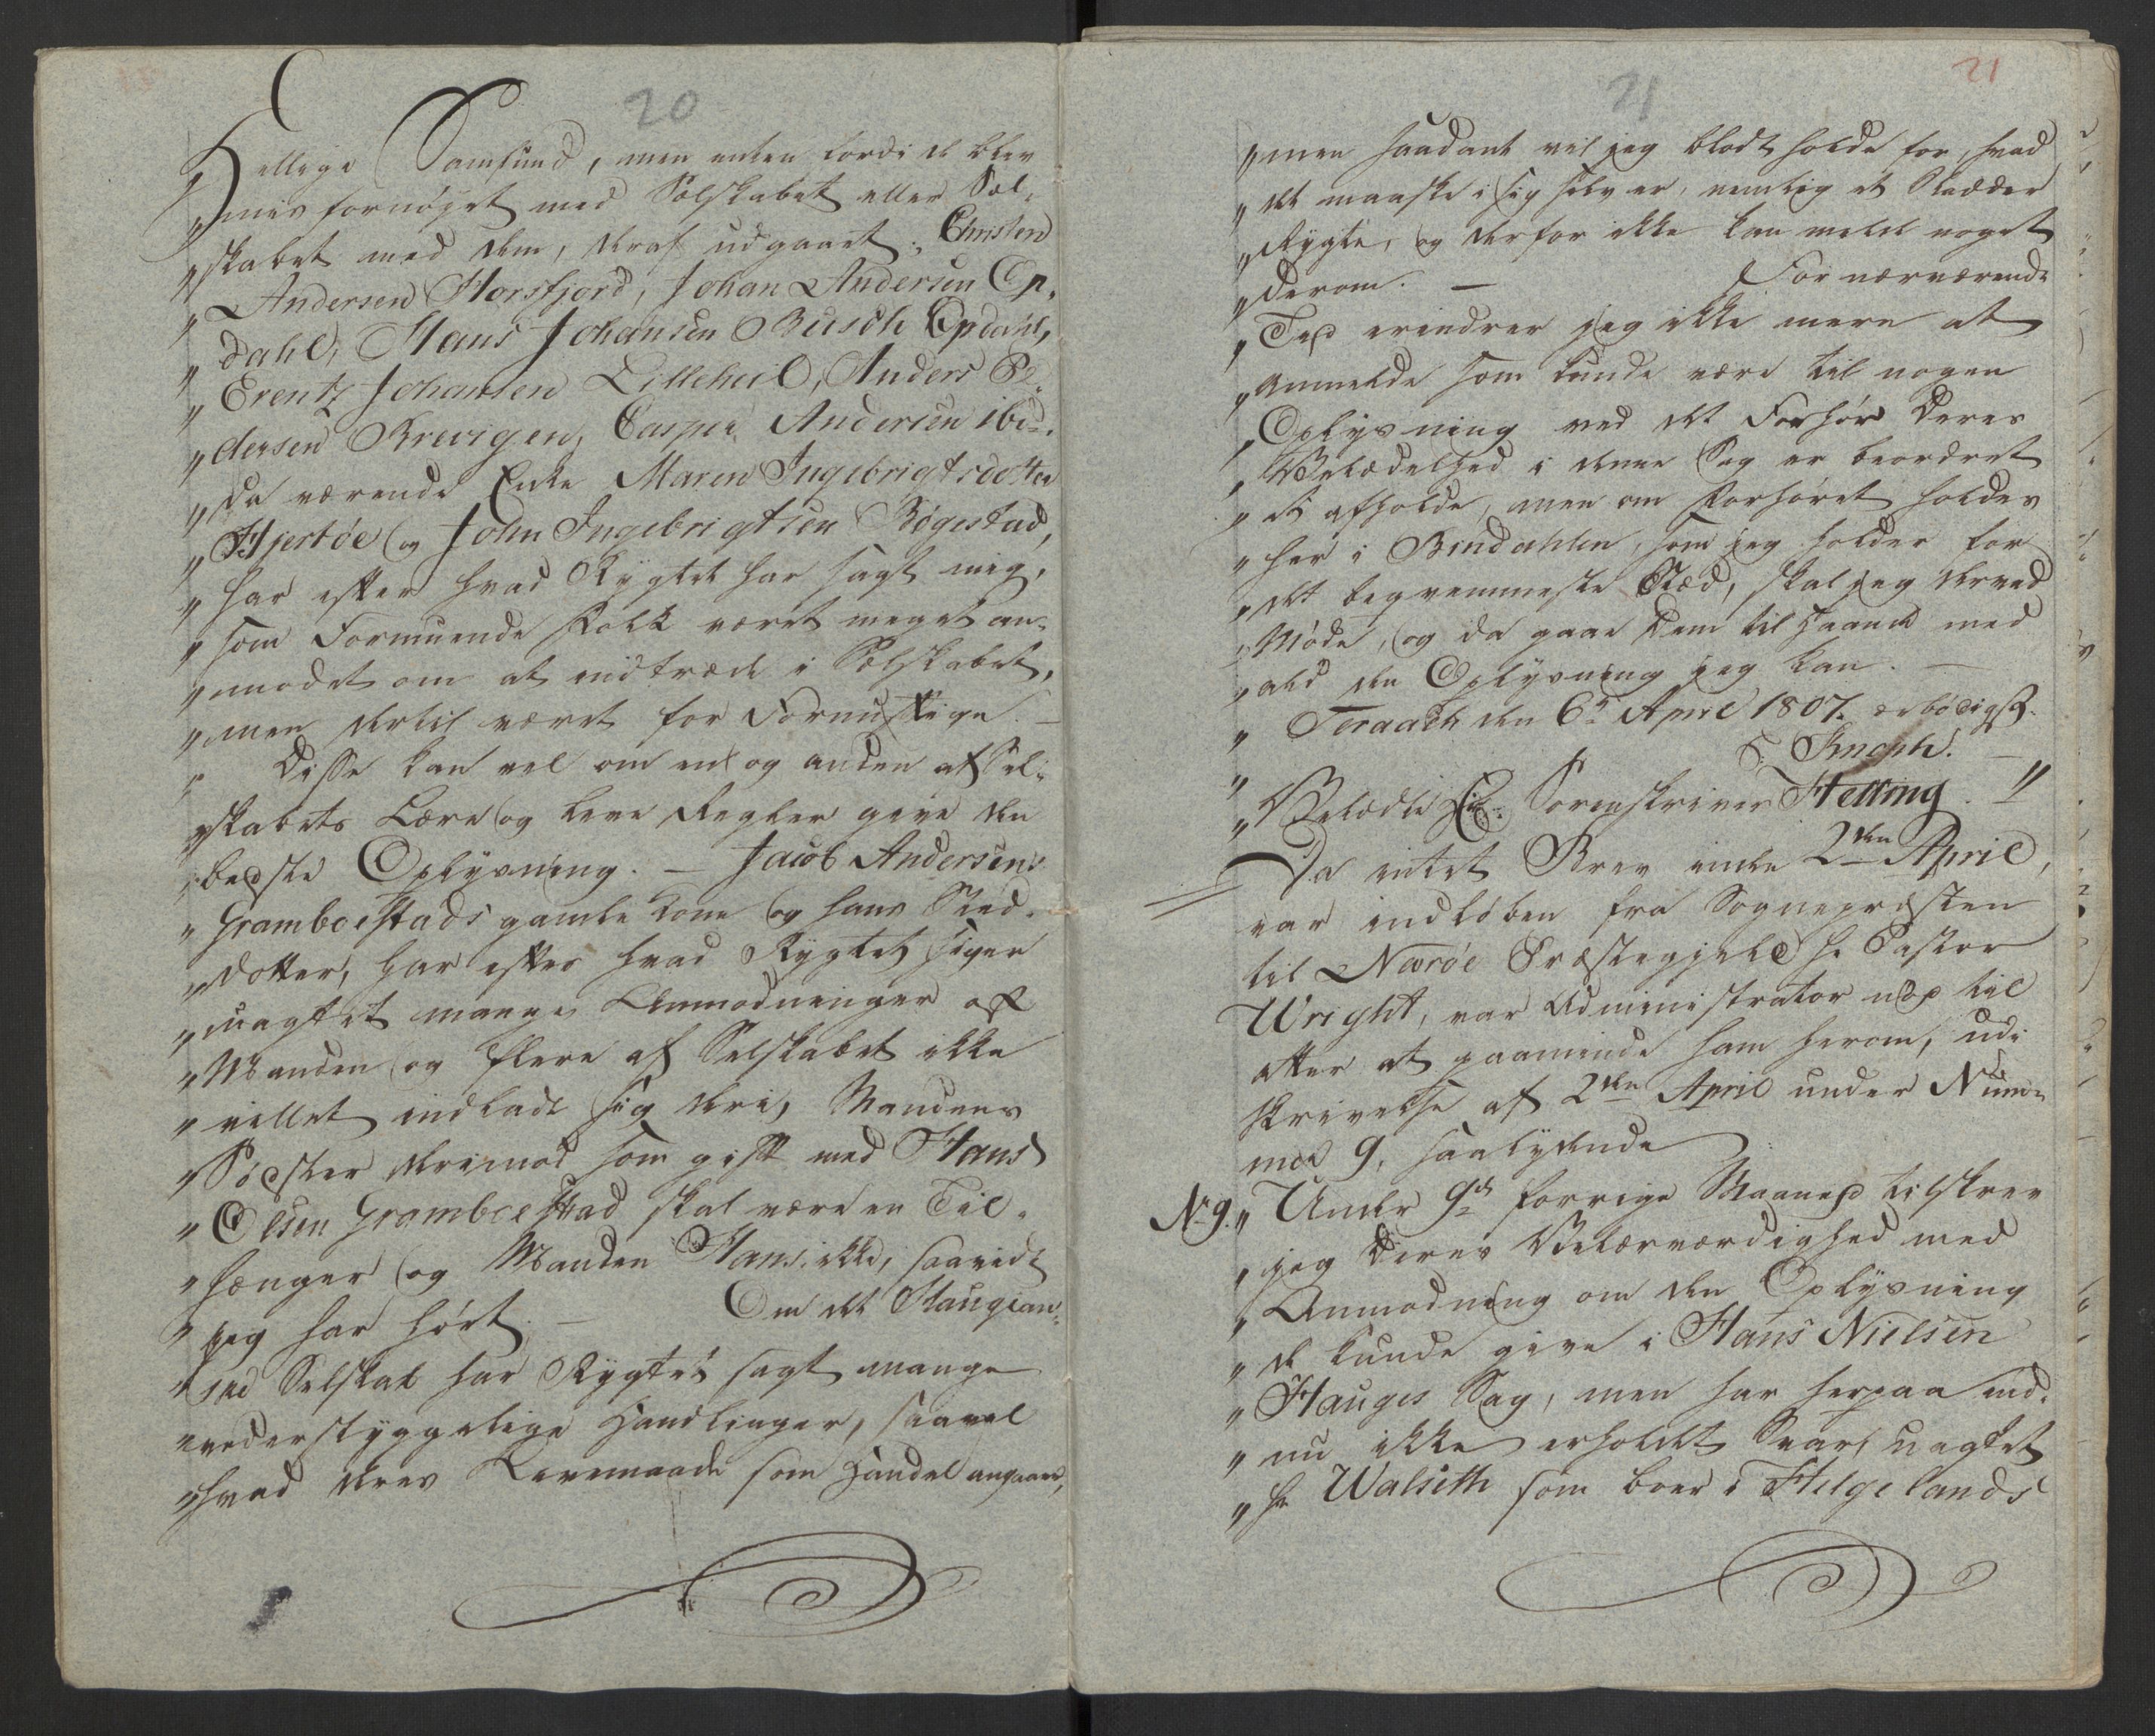 20
Hellige Samfund, men enten fordi de blev
„mis fornøyet med Selskabet eller Sel-
„skabet med dem, deraf udgaaet: Christen
„Andersen Horsfjord, Johan Andersen Op-
„dahl, Hans Johansen Busch Opdahl,
„Erentz Johansen Lilleheil, Anders Pe-
„dersen Brevigen, Casper Andersen ibid:
„da værende Enke Maren Ingebrigtsdotter
„Hjertøe og John Ingebrigtsen Bøgestad,
„har efter hvad Rygtet har sagt mig,
„som Formuende Folk været meget an-
„modet om at indtræde i Selskabet,
„men dertil været for Fornuftige. —
„Disse kan vel om en og anden af Sel-
„skabets Lære og leve Regler give den
„bedste Oplysning. — Jacob Andersens
„Gramboestads gamle Kone og hans Sted-
„dotter, har efter hvad Rygtet siger
„uagtet mange Anmodninger af
„Manden og flere af Selskabet ikke
„villet indlade sig deri, Mandens
„Søster derimod som gift med Hans
„Olsen Gramboestad skal være en Til-
„hænger og Manden Hans ikke, saavidt
„jeg har hørt. — Om det Haugian-
„ske Selskab har Rygtet sagt mange
„vederstyggelige Handlinger, saavel
„hvad deres Levemaade som Handel angaaer,
21
21
„men saadant vil jeg blodt holde for, hvad
„det maaske i sig selv er, nemlig et Sladder
„Rygte, og derfor ikke kan meldt noget
„derom. — For nærværende
„Tid erindrer jeg ikke mere at
„anmelde som kunde være til nogen
„Oplysning ved det Forhør Deres
„Velædelhed i denne Sag er beordret
„at afholde, men om Forhøret holdes
„her i Bindahlen, som jeg holder for
„det beqvemmeste Stæd, skal jeg derved
„Møde, og da gaae Dem til Haande med
„ald den Oplysning jeg kan. —
„Teraach den 6te April 1807. ærbødigst
„ Knoph. —
„Velædle Hr: Sorenskriver Helling. „
Da intet Brev inden 2den April,
var indløben fra Sognepræsten
til Nærøe Præstegjeld Hr Pastor
Wright, var Administrator nød til
atter at paaminde ham herom, udi
skrivelse af 2den April under Num-
mer 9, saalydende
No 9. „Under 9de forrige Maaned tilskrev
„jeg Deres Velærværdighed med
„Anmodning om den Oplysning
„de kunde give i Hans Nielsen
„Hauges Sag, men har herpaa end-
„nu ikke erholdt Svar, uagtet
„Hr Walseth som boer i Helgelands